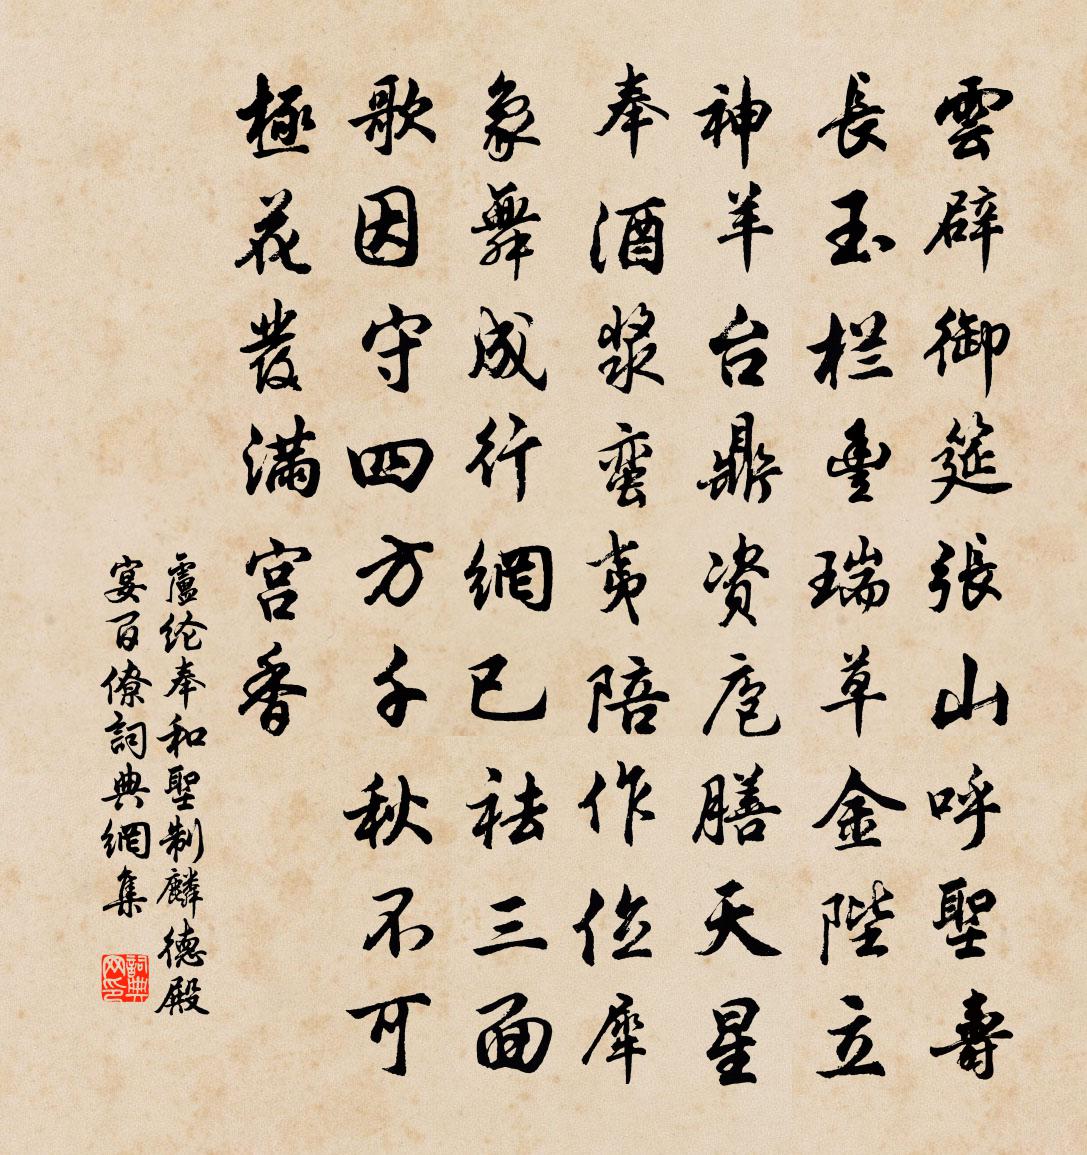 雲辟御筵張山呼聖壽
長玉栏豊瑞草金陛立
神羊台鼎资庖膳天星
奉酒漿蛮夷陪作位犀
象舞成行網已祛三面
歌因守四方千秋不可
極花發滿宮香
盧纶奉和聖制麟德殿
宴百僚詞典網集
詞典
网印